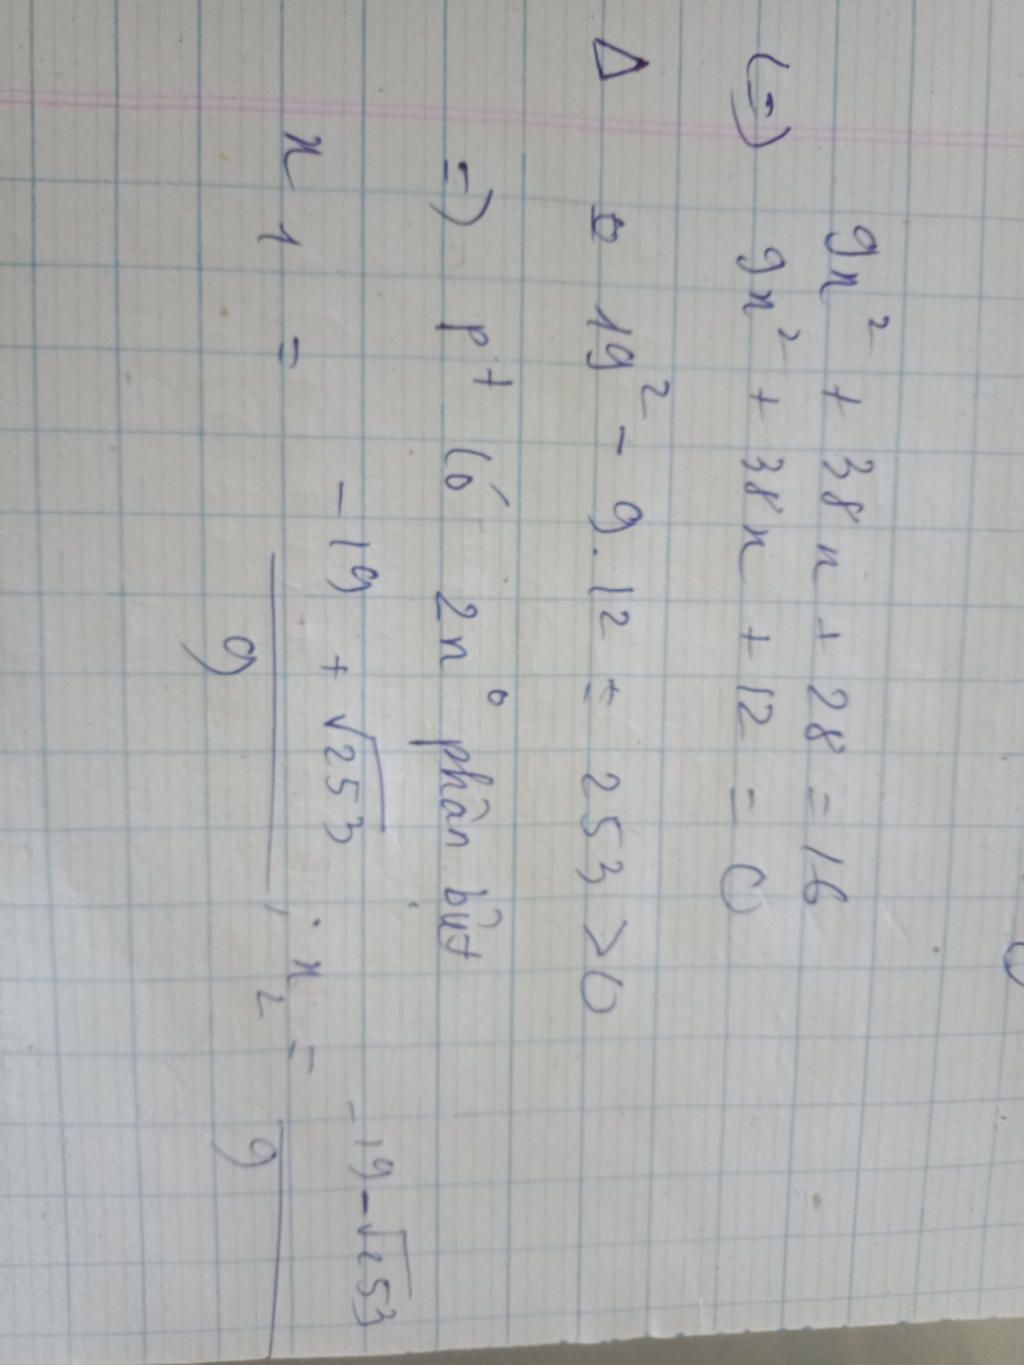 9x² + 38x + 28 = 16
(=) 9x² + 38x + 12 = 0
Δ = 19² - 9.12 = 253 > 0
=) pt có 2n⁰ phân biệt
x1 = (-19 + √253)/9 ; x2 = (-19 - √253)/9